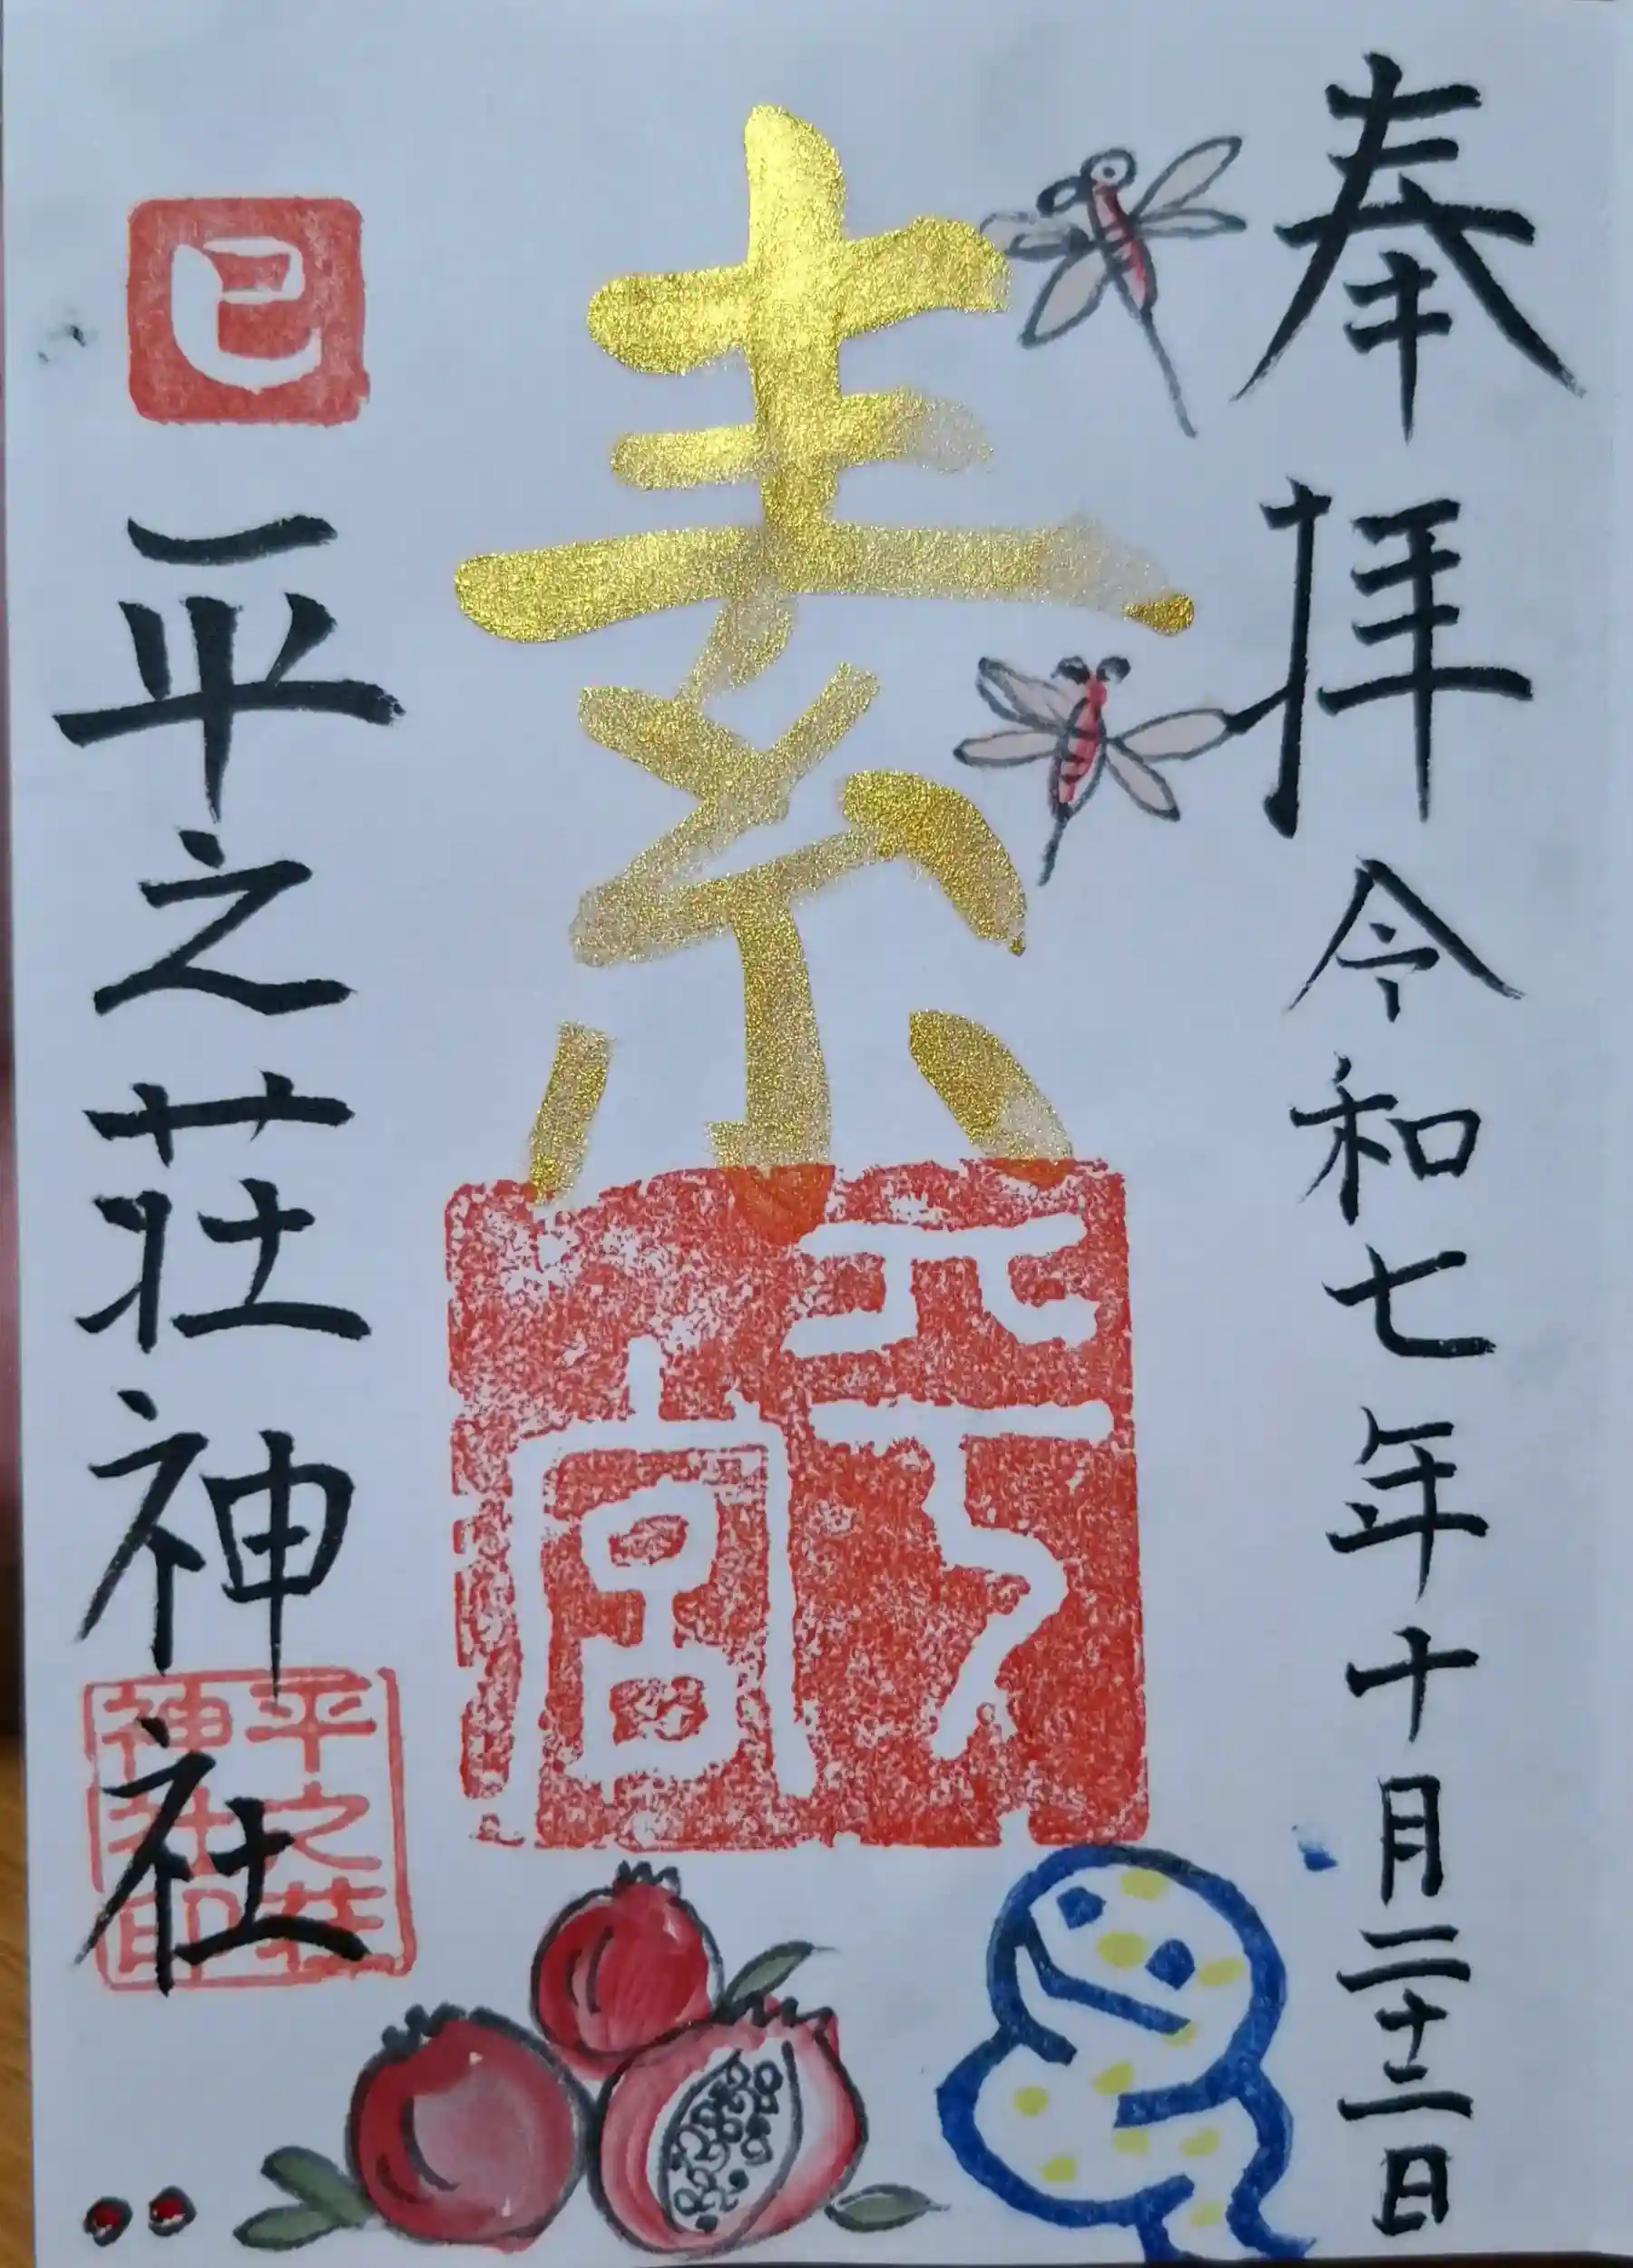 奉拝 令和七年十月二十二日
素
巳
平之荘神社
平之荘
神社印